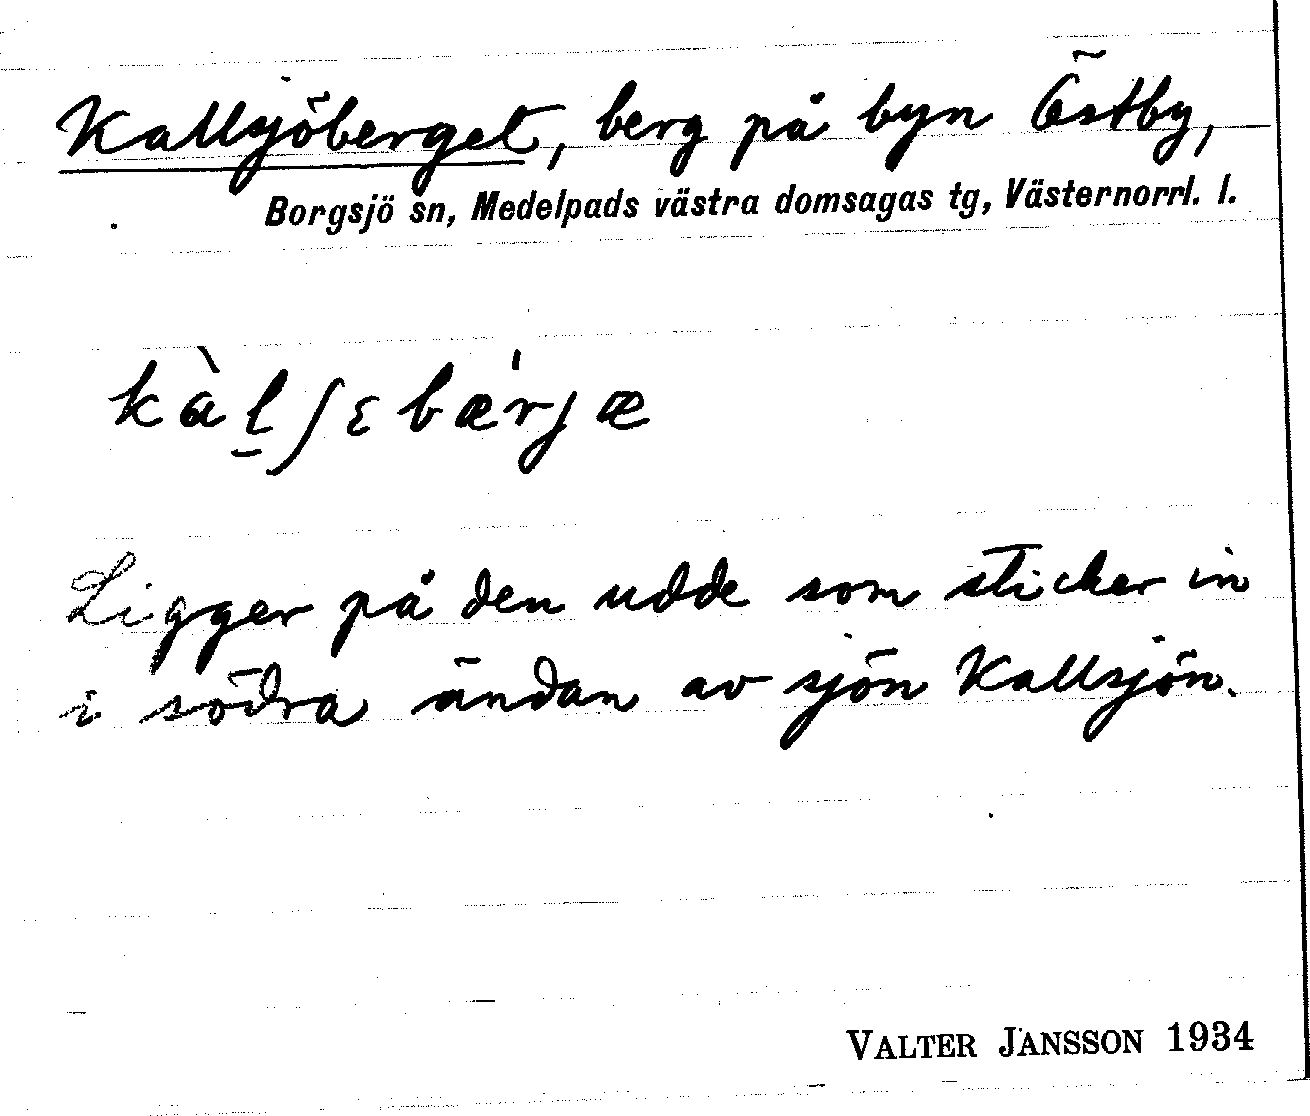 Kallsjöberget, berg på byn Östby,
Borgsjö sn, Medelpads västra domsagas tg, Västernorrl. l.
kàl̠ʃɛbæ'rjæ
Ligger på den udde som sticker in
i södra ändan av sjön Kallsjön.
VALTER JANSSON 1934